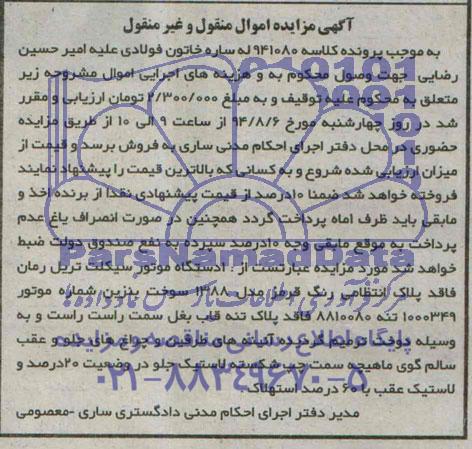 آگهی مزایده اموال منقول و غیر منقول
به موجب پرونده کلاسه ۹۴۱۰۸۰ له ساره خاتون فولادی علیه امیر حسین
رضایی جهت وصول محکوم به و هزینه های اجرایی اموال مشروحه زیر
متعلق به محکوم علیه توقیف و به مبلغ ۲/۳۰۰/۰۰۰ تومان ارزیابی و مقرر
شد در روز چهارشنبه مورخ ۹۴/۸/۶ از ساعت ۹ الی ۱۰ از طریق مزایده
حضوری در محل دفتر اجرای احکام مدنی ساری به فروش برسد و قیمت از
میزان ارزیابی شده شروع و به کسانی که بالاترین قیمت را پیشنهاد نمایند
فروخته خواهد شد ضمنا ۱۰درصد از قیمت پیشنهادی نقدا از برنده اخذ و
مابقی باید ظرف اماه پرداخت گردد همچنین در صورت انصراف یاغ عدم
پرداخت به موقع مابقی وجه ۱۰درصد سپرده به نفع صندوق دولت ضبط
خواهد شد مورد مزایده عبارتست از : ادستگاه موتور سیکلت تریل رمان
فاقد پلاک انتظامی رنگ قرمز مدل ۱۳۸۸ سوخت بنزین شماره موتور
۱۰۰۰۳۴۹ تنه ۸۸۱۰۰۸۰ فاقد پلاک تنه قاب بغل سمت راست راست و به
وسیله دوخت ترمیم گردیده آینه های طرفین و چراغ های جلو و عقب
سالم گوی ماهیچه سمت چپ شکسته لاستیک جلو در وضعیت ۲۰درصد و
لاستیک عقب با ۶۰ درصد استهلاک
مدیر دفتر اجرای احکام مدنی دادگستری ساری -معصومی
ParsNamadData
پایگاه اطلاع رسانی مناقصه و مزایده
۰۲۱-۸۸۳۴۹۶۷۰-۵